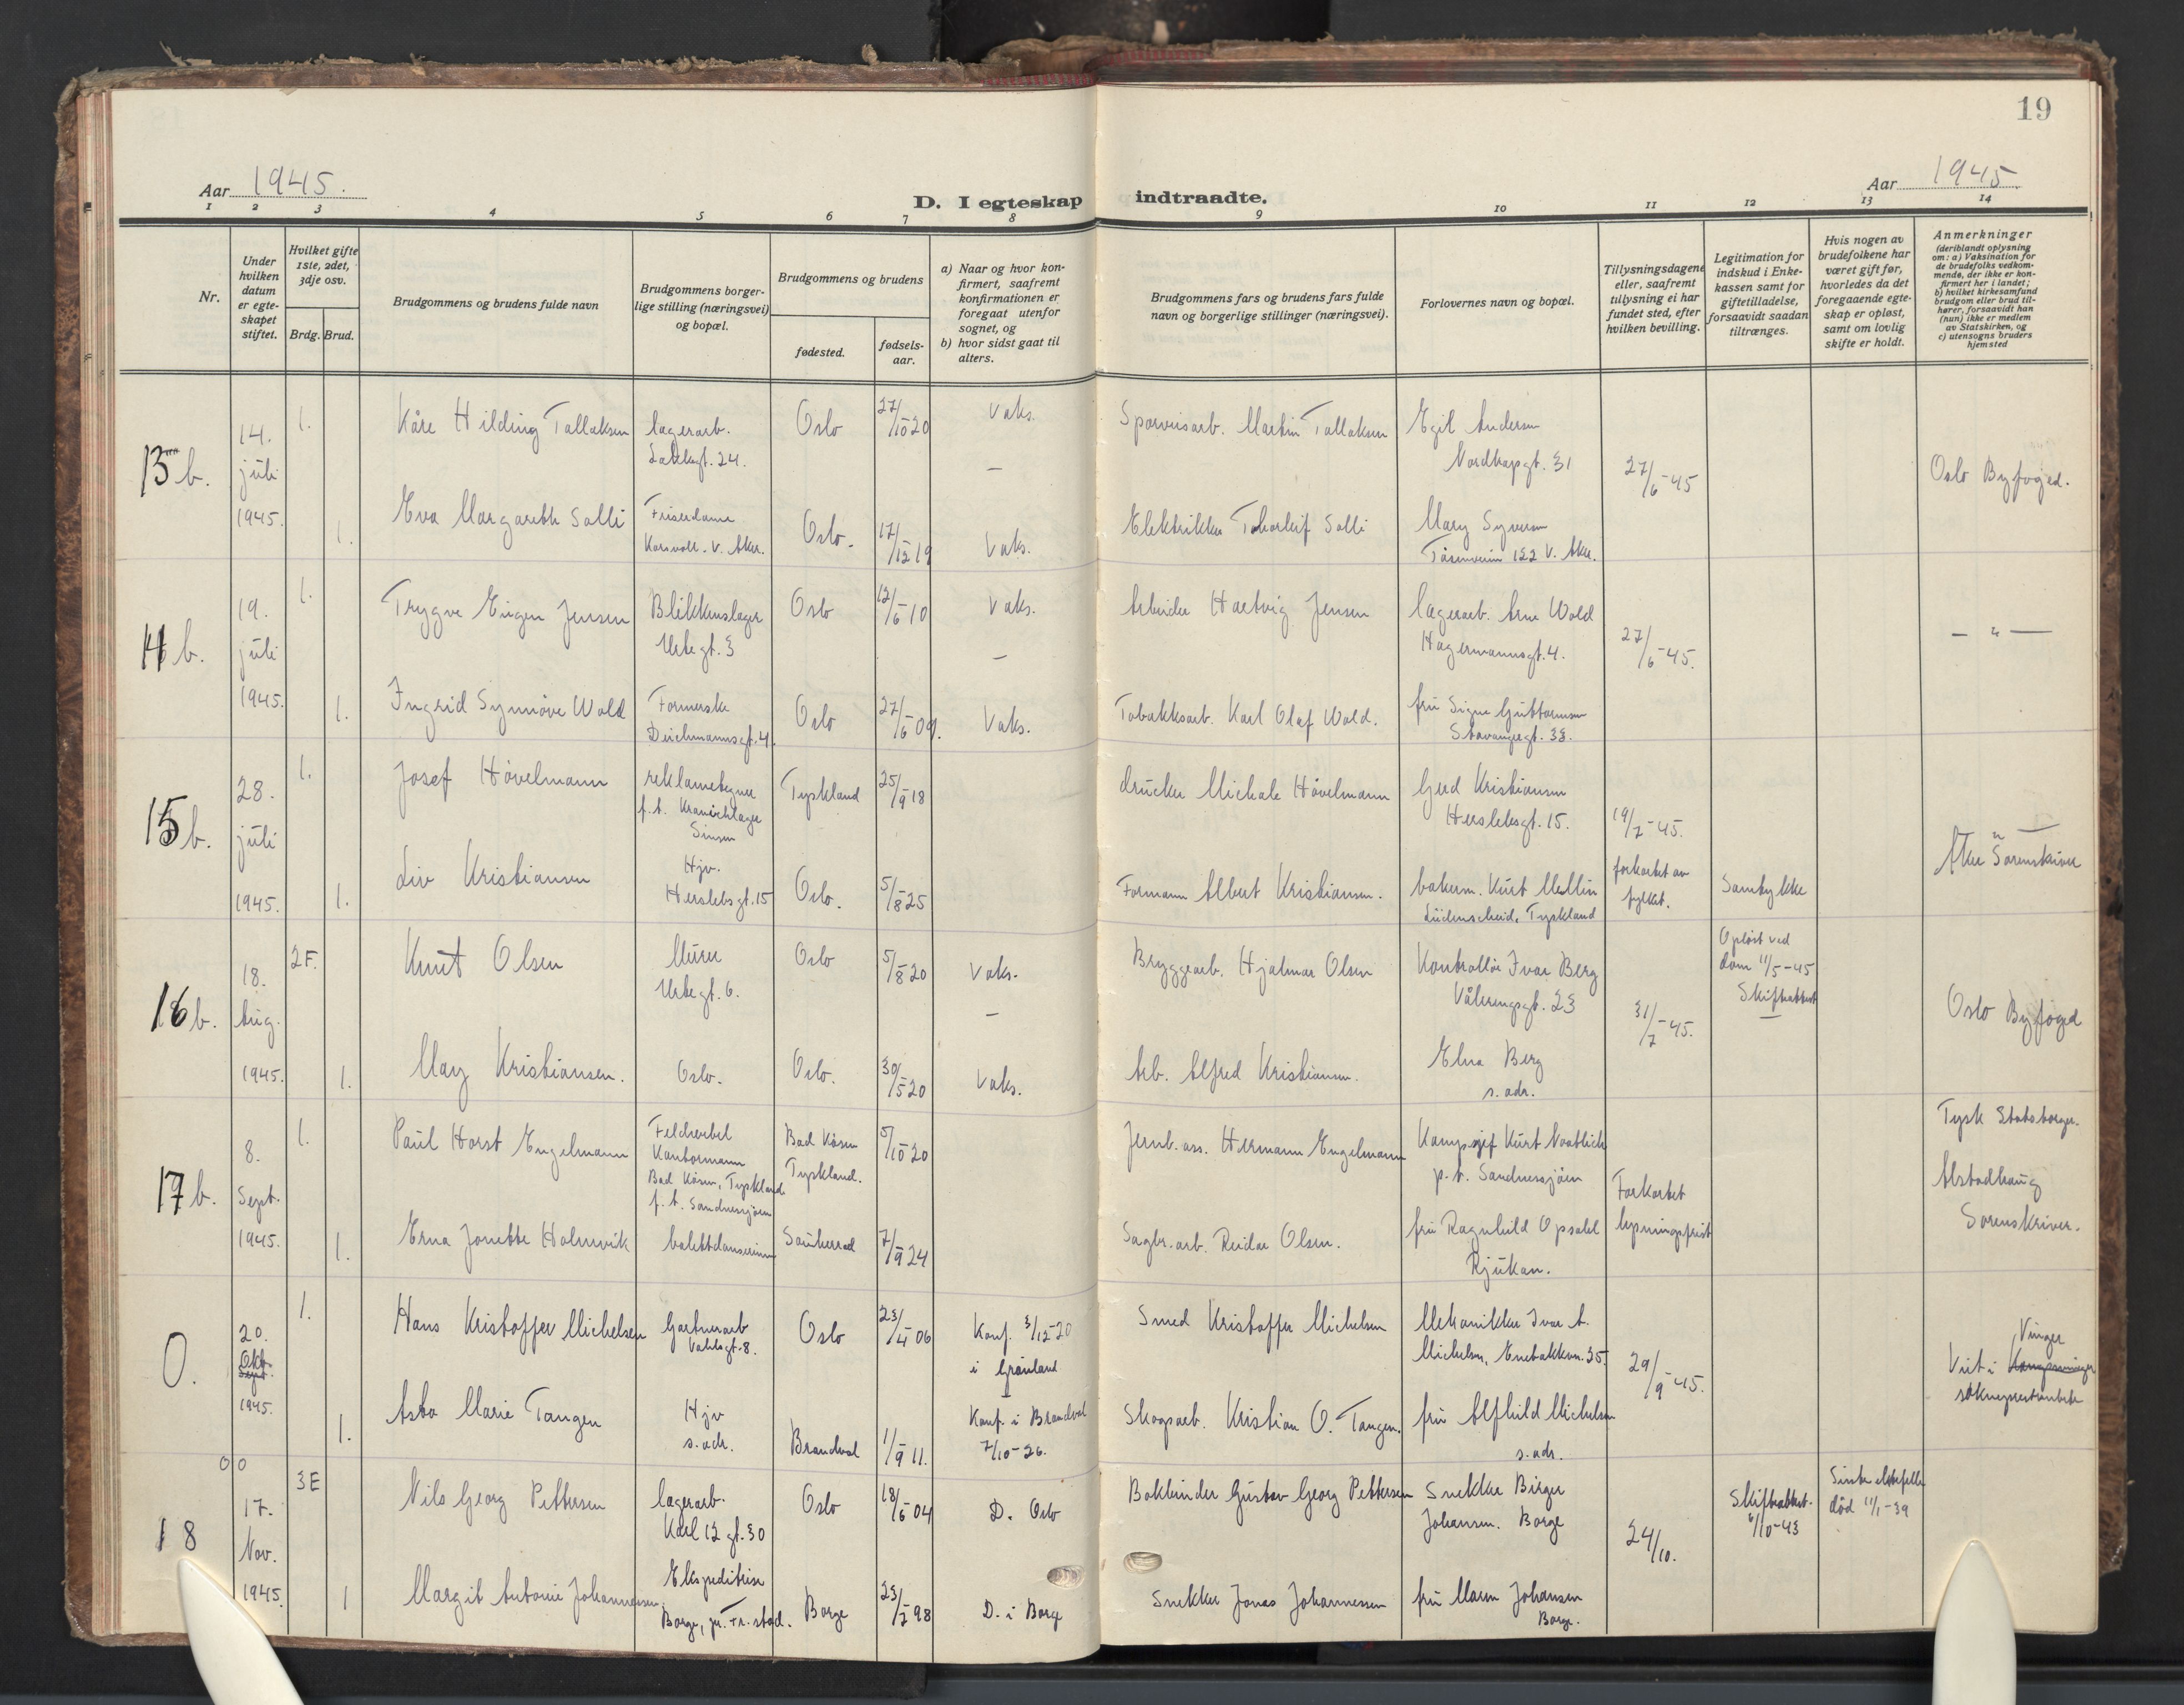 19
Aar 1945.
Aar 1945
D. I egteskap indtraadte.
1 2 3 4 5 6 7 8 9 10 11 12 13 14
Nr.
Under hvilken datum er egteskapet stiftet.
Hvilket gifte 1ste, 2det, 3dje osv.
Brdg. Brud.
Brudgommens og brudens fulde navn
Brudgommens borgerlige stilling (næringsvei) og bopæl.
Brudgommens og brudens
fødested.
fødselsaar.
a) Naar og hvor konfirmert, saafremt konfirmationen er foregaat utenfor sognet, og
b) hvor sidst gaat til alters.
Brudgommens fars og brudens fars fulde navn og borgerlige stillinger (næringsvei).
Forlovernes navn og bopæl.
Tillysningsdagene eller, saafremt tillysning ei har fundet sted, efter hvilken bevilling.
Legitimation for indskud i Enkekassen samt for giftetilladelse, forsaavidt saadan tiltrænges.
Hvis nogen av brudefolkene har været gift før, hvorledes da det foregaaende egteskap er opløst, samt om lovlig skifte er holdt.
Anmerkninger
(deriblandt oplysning om: a) Vaksination for de brudefolks vedkommende, der ikke er konfirmert her i landet;
b) hvilket kirkesamfund brudgom eller brud tilhører, forsaavidt han (hun) ikke er medlem av Statskirken, og
c) utensogns bruders hjemsted
13 b. 14. juli 1945.
1. Kåre Hilding Tallaksen lagerarb. Oslo 27/10-20 Vaks.
Sporveisarb. Martin Tallaksen Egil Andersen Nordkapgt. 31 27/6-45 Oslo Byfoged.
1. Eva Margarethe Solli Friserdame Oslo. 17/12-19 Vaks.
Elektriker Thorleif Solli Mary Syversen Tåsenveien 122 V. Aker.
b. 19. juli 1945.
1. Trygve Eugen Jensen Blikkenslager Urtegt. 3 Oslo 12/6-10 Vaks.
Arbeider Hartvig Jensen lagerarb. Arne Wold Hagermannsgt. 4. 27/6-45. — " —
1. Ingrid Synnøve Wold Formerske Deichmannsgt. 4. Oslo 27/6-09. Vaks.
Tobakksarb. Karl Olaf Wold. fru Signe Guttormsen Stavangergt. 33.
15 b. 28. juli 1945.
1. Josef Hövelmann reklametegner Sinsen Tyskland 25/9-18
drucker Hövelmann Gerd Kristiansen Herslebsgt. 15. 19/7-45. forkortet av fylket.
Aker Sorenskriver
1. Liv Kristiansen Hjv. Herslebsgt. 15 Oslo. 5/8-25
Formann Albert Kristiansen. Kurt Lüdenscheid, Tyskland Samtykke
16 b. 18. Aug. 1945.
2F. Knut Olsen Murer Urtegt. 6. Oslo 5/8-20 Vaks.
Bryggearb. Hjalmar Olsen Kontrollør Ivar Berg Vålerengsgt. 23 31/7-45. Opløst ved dom 11/5-45 Skifteattest Oslo Byfoged
1. May Kristiansen. Oslo. Oslo. 30/5-20 Vaks.
Arb. Alfred Kristiansen. Elna Berg s. adr.
17 b. 8. Sept. 1945.
1. Paul Horst Engelmann Feldwebel Kontormann Bad Kösen, Tyskland f. t. Sandnessjøen Bad Kösen Tyskland. 5/10-20
Jernb. ass. Hermann Engelmann Kurt p.t. Sandnessjøen Forkortet lysningsfrist Tysk Statsborger.
Alstadhaug Sorenskriver.
1. Erna Jonette Holmvik balettdanserinne Sauherad 7/9-24
Sagbr.arb. Reidar Olsen. fru Ragnhild Opsahl Rjukan.
0. 20. Okt. 1945.
1. Hans Kristoffer Michelsen Gartnerarb Vahlsgt. 8. Oslo 23/4-06 Konf. 3/12-20 i Grønland
Smed Kristoffer Michelsen Mekaniker Ivar A. Michelsen, Enebakkvn. 35. 29/9-45. Viet i Vinger sokneprestembete
1. Asta Marie Tangen Hjv s. adr. Brandval 1/9-11. Konf. i Brandval 7/10-26.
Skogsarb. Kristian O. Tangen. fru Alfhild Michelsen s. adr.
00
18 17. Nov. 1945.
3E Nils Georg Pettersen lagerarb. Karl 12 gt. 30 Oslo 18/6-04 D. Oslo
Bokbinder Gustav Georg Pettersen Snekker Birger Johansen. Borge 24/10. Skifteattest. 6/10-43 Siste ektefelle død 11/1-39
1 Margit Antonie Johannessen Ekspeditrise Borge, pr. Fr.stad. Borge 23/7-98 D. i Borge
Snekker Jonas Johannessen fru Maren Johansen Borge.